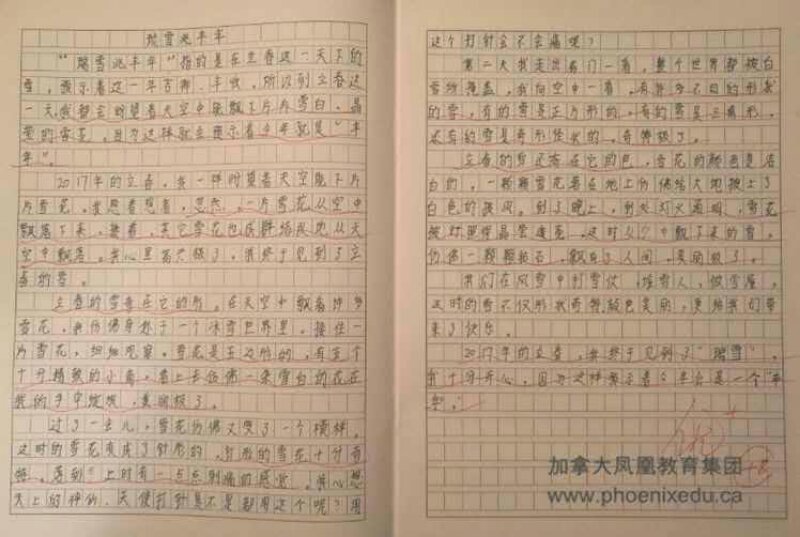 瑞雪兆丰年
"瑞雪兆丰年"指的是在立春这一天下的
雪,预示着这一年吉祥、丰收,所以到立春这
一天我都会盼望着天空中能飘下片片雪白、晶
莹的雪花,因为这样就预示着今年就是"丰
年"。
2017年的立春,我一样盼望着天空飘下片
片雪花,我想着想着,忽然,一片雪花从空中
飘落下来,接着,其它雪花也成群结队地从天
空中飘落。我心里高兴极了,我终于见到了立
春的雪。
立春的雪美在它的形。在天空中飘着许多
雪花,我仿佛身处于一个冰雪世界里。接住一
片雪花,细细观察,雪花是五边形的,有五个
十分精致的小角,看上去仿佛一朵雪白的花在
我的手中绽放,美丽极了。
过了一会儿,雪花仿佛又变了一个模样,
这时的雪花变成了针形的,针形的雪花十分奇
特,落到手上时有一点点刺痛的感觉。我心想
天上的神仙、天使打针是不是都用这个呢?用
这个打针会不会痛呢?
第二天我走出家门一看,整个世界都被白
雪所掩盖,我向空中一看,有许多不同的形状
的雪,有的雪是正方形的,有的雪是三角形,
还有的雪是奇形怪状的,奇特极了。
立春的雪还美在它的色,雪花的颜色是洁
白的,一颗颗雪花落在地上仿佛给大地披上了
白色的披风。到了晚上,到处灯火通明,雪花
被灯照得晶莹透亮,这时空中飘下来的雪,
仿佛一颗颗钻石,飘向了人间,美丽极了。
我们在风雪中打雪仗、堆雪人、做雪屋,
这时的雪不仅形状奇特颜色美丽,更给我们带
来了快乐。
2017年的立春,我终于见到了"瑞雪"。
我十分开心,因为这种预示着今年会是一个"丰
年。"
优+
加拿大凤凰教育集团
www.phoenixedu.ca